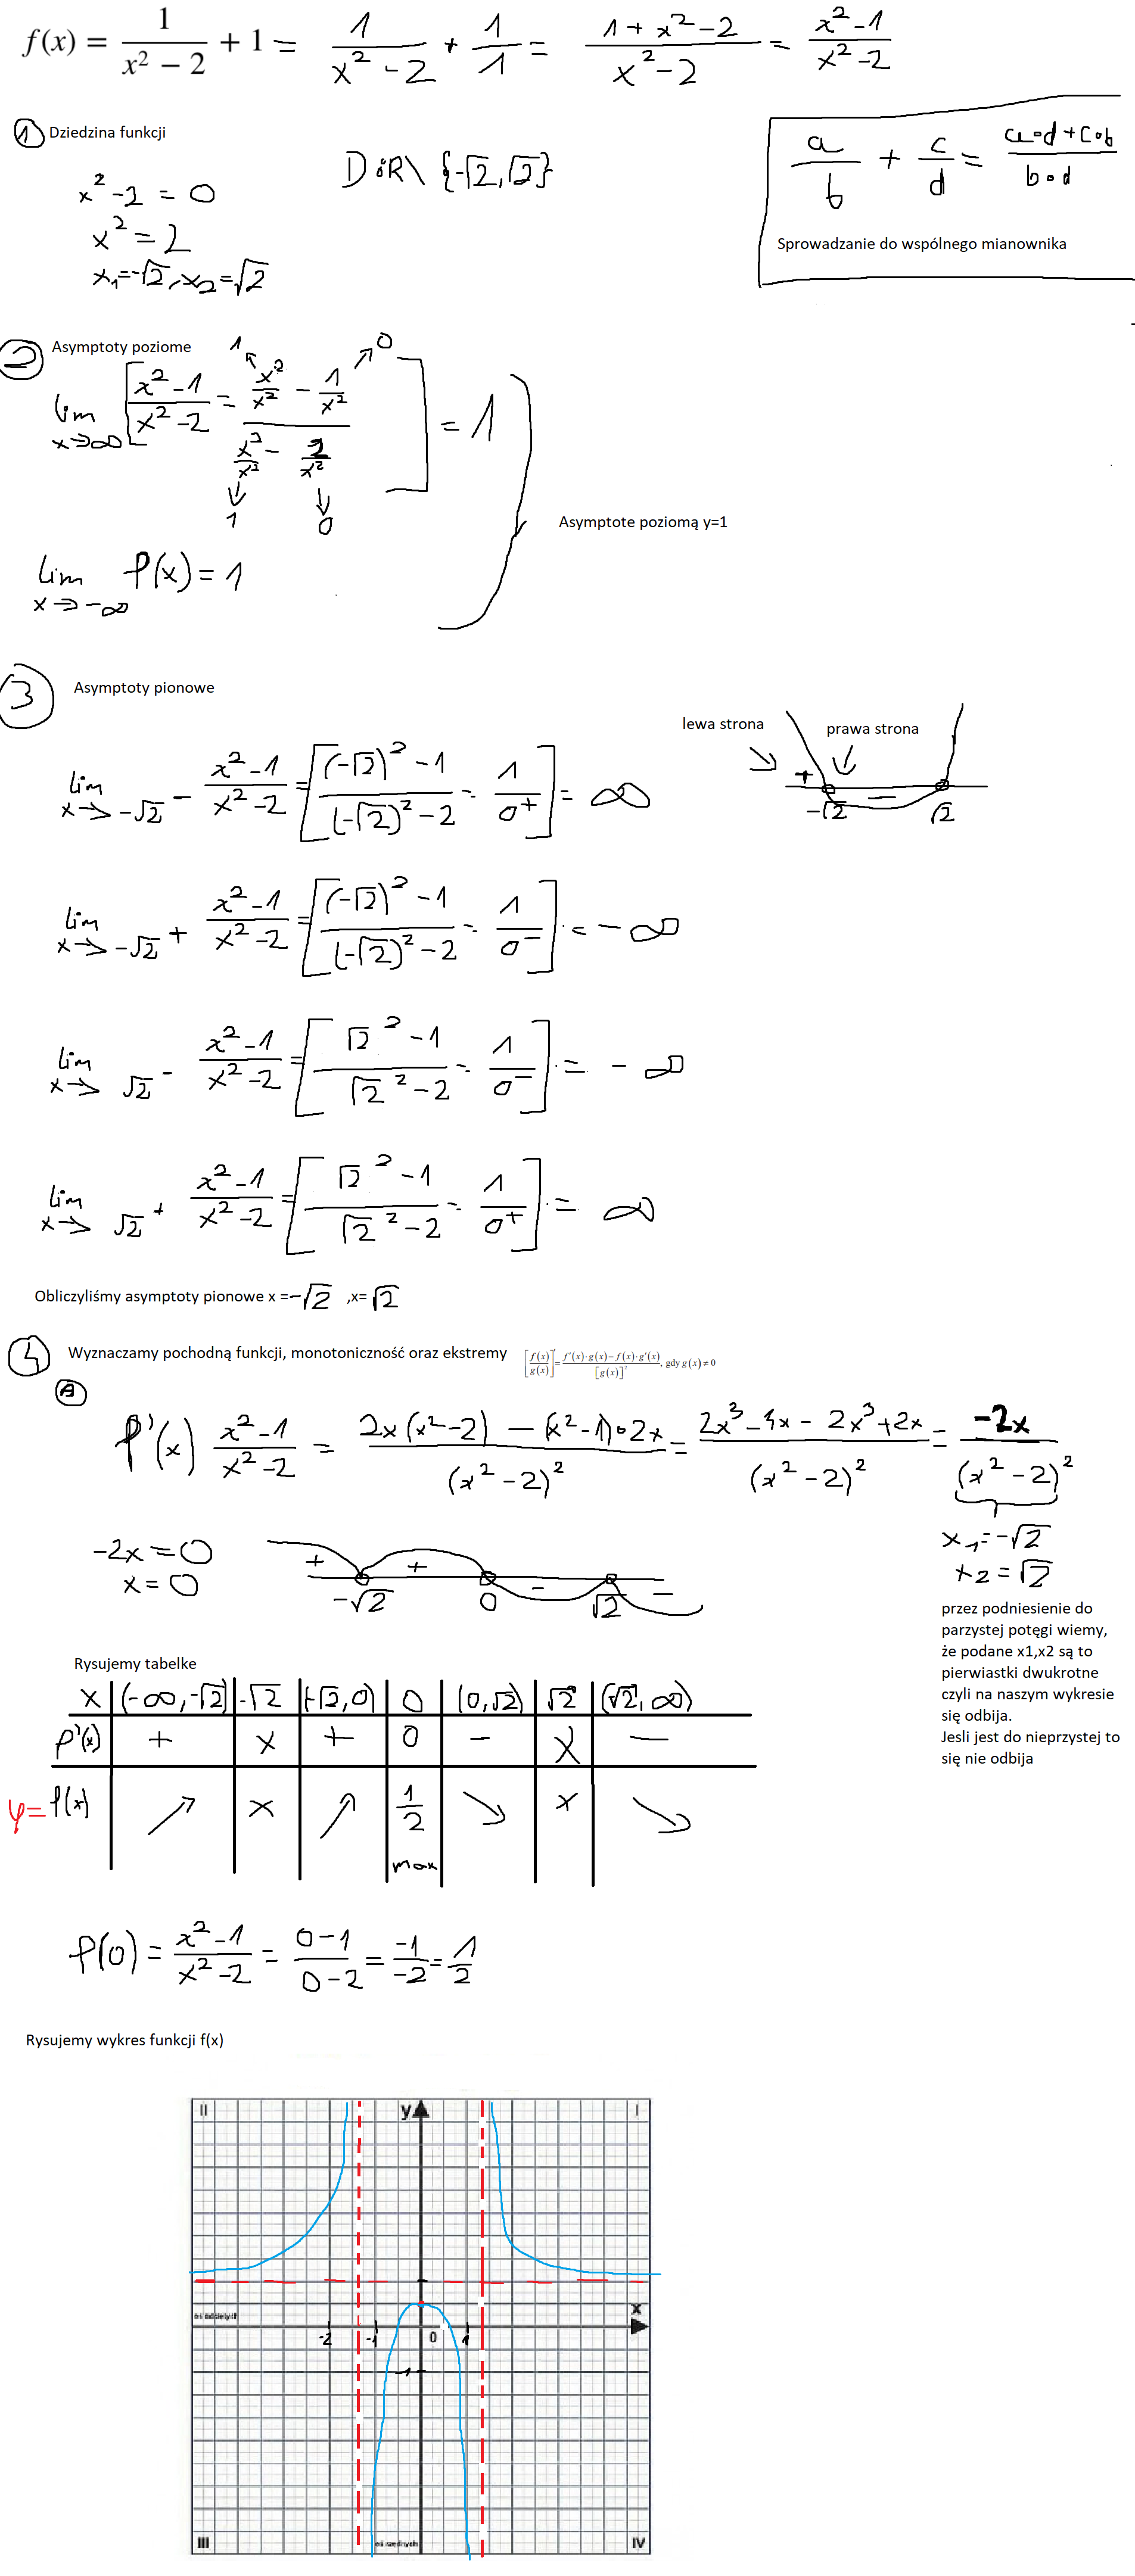 f(x) = 1/(x² − 2) + 1 = 1/(x² − 2) + 1/1 = (1 + x² − 2)/(x² − 2) = (x² − 1)/(x² − 2)
① Dziedzina funkcji
x² − 2 = 0
x² = 2
x₁ = −√2, x₂ = √2
D: R \ {−√2, √2}
a/b + c/d = (a·d + c·b)/(b·d)
Sprowadzanie do wspólnego mianownika
② Asymptoty poziome
lim x→∞ [(x² − 1)/(x² − 2) = (x²/x² − 1/x²)/(x²/x² − 2/x²)] = 1
1 0
1 0
lim x→−∞ f(x) = 1
Asymptote poziomą y=1
③ Asymptoty pionowe
lewa strona
prawa strona
+ − −√2 √2
lim x→−√2⁻ (x² − 1)/(x² − 2) = [((−√2)² − 1)/((−√2)² − 2) = 1/0⁺] = ∞
lim x→−√2⁺ (x² − 1)/(x² − 2) = [((−√2)² − 1)/((−√2)² − 2) = 1/0⁻] = −∞
lim x→√2⁻ (x² − 1)/(x² − 2) = [(√2² − 1)/(√2² − 2) = 1/0⁻] = −∞
lim x→√2⁺ (x² − 1)/(x² − 2) = [(√2² − 1)/(√2² − 2) = 1/0⁺] = ∞
Obliczyliśmy asymptoty pionowe x =−√2 ,x= √2
④ Wyznaczamy pochodną funkcji, monotoniczność oraz ekstremy
[f(x)/g(x)]' = (f'(x)·g(x) − f(x)·g'(x))/[g(x)]², gdy g(x) ≠ 0
f'(x) (x² − 1)/(x² − 2) = (2x(x² − 2) − (x² − 1)·2x)/(x² − 2)² = (2x³ − 4x − 2x³ + 2x)/(x² − 2)² = −2x/(x² − 2)²
x₁ = −√2
x₂ = √2
−2x = 0
x = 0
+ + − −
−√2 0 √2
przez podniesienie do
parzystej potęgi wiemy,
że podane x1,x2 są to
pierwiastki dwukrotne
czyli na naszym wykresie
się odbija.
Jesli jest do nieprzystej to
się nie odbija
Rysujemy tabelke
x (−∞, −√2) −√2 (−√2, 0) 0 (0, √2) √2 (√2, ∞)
f'(x) + x + 0 − x −
y= f(x) ↗ x ↗ 1/2 ↘ x ↘
max
f(0) = (x² − 1)/(x² − 2) = (0 − 1)/(0 − 2) = −1/−2 = 1/2
Rysujemy wykres funkcji f(x)
II y I
x
-2 -1 0 1
-1
III IV